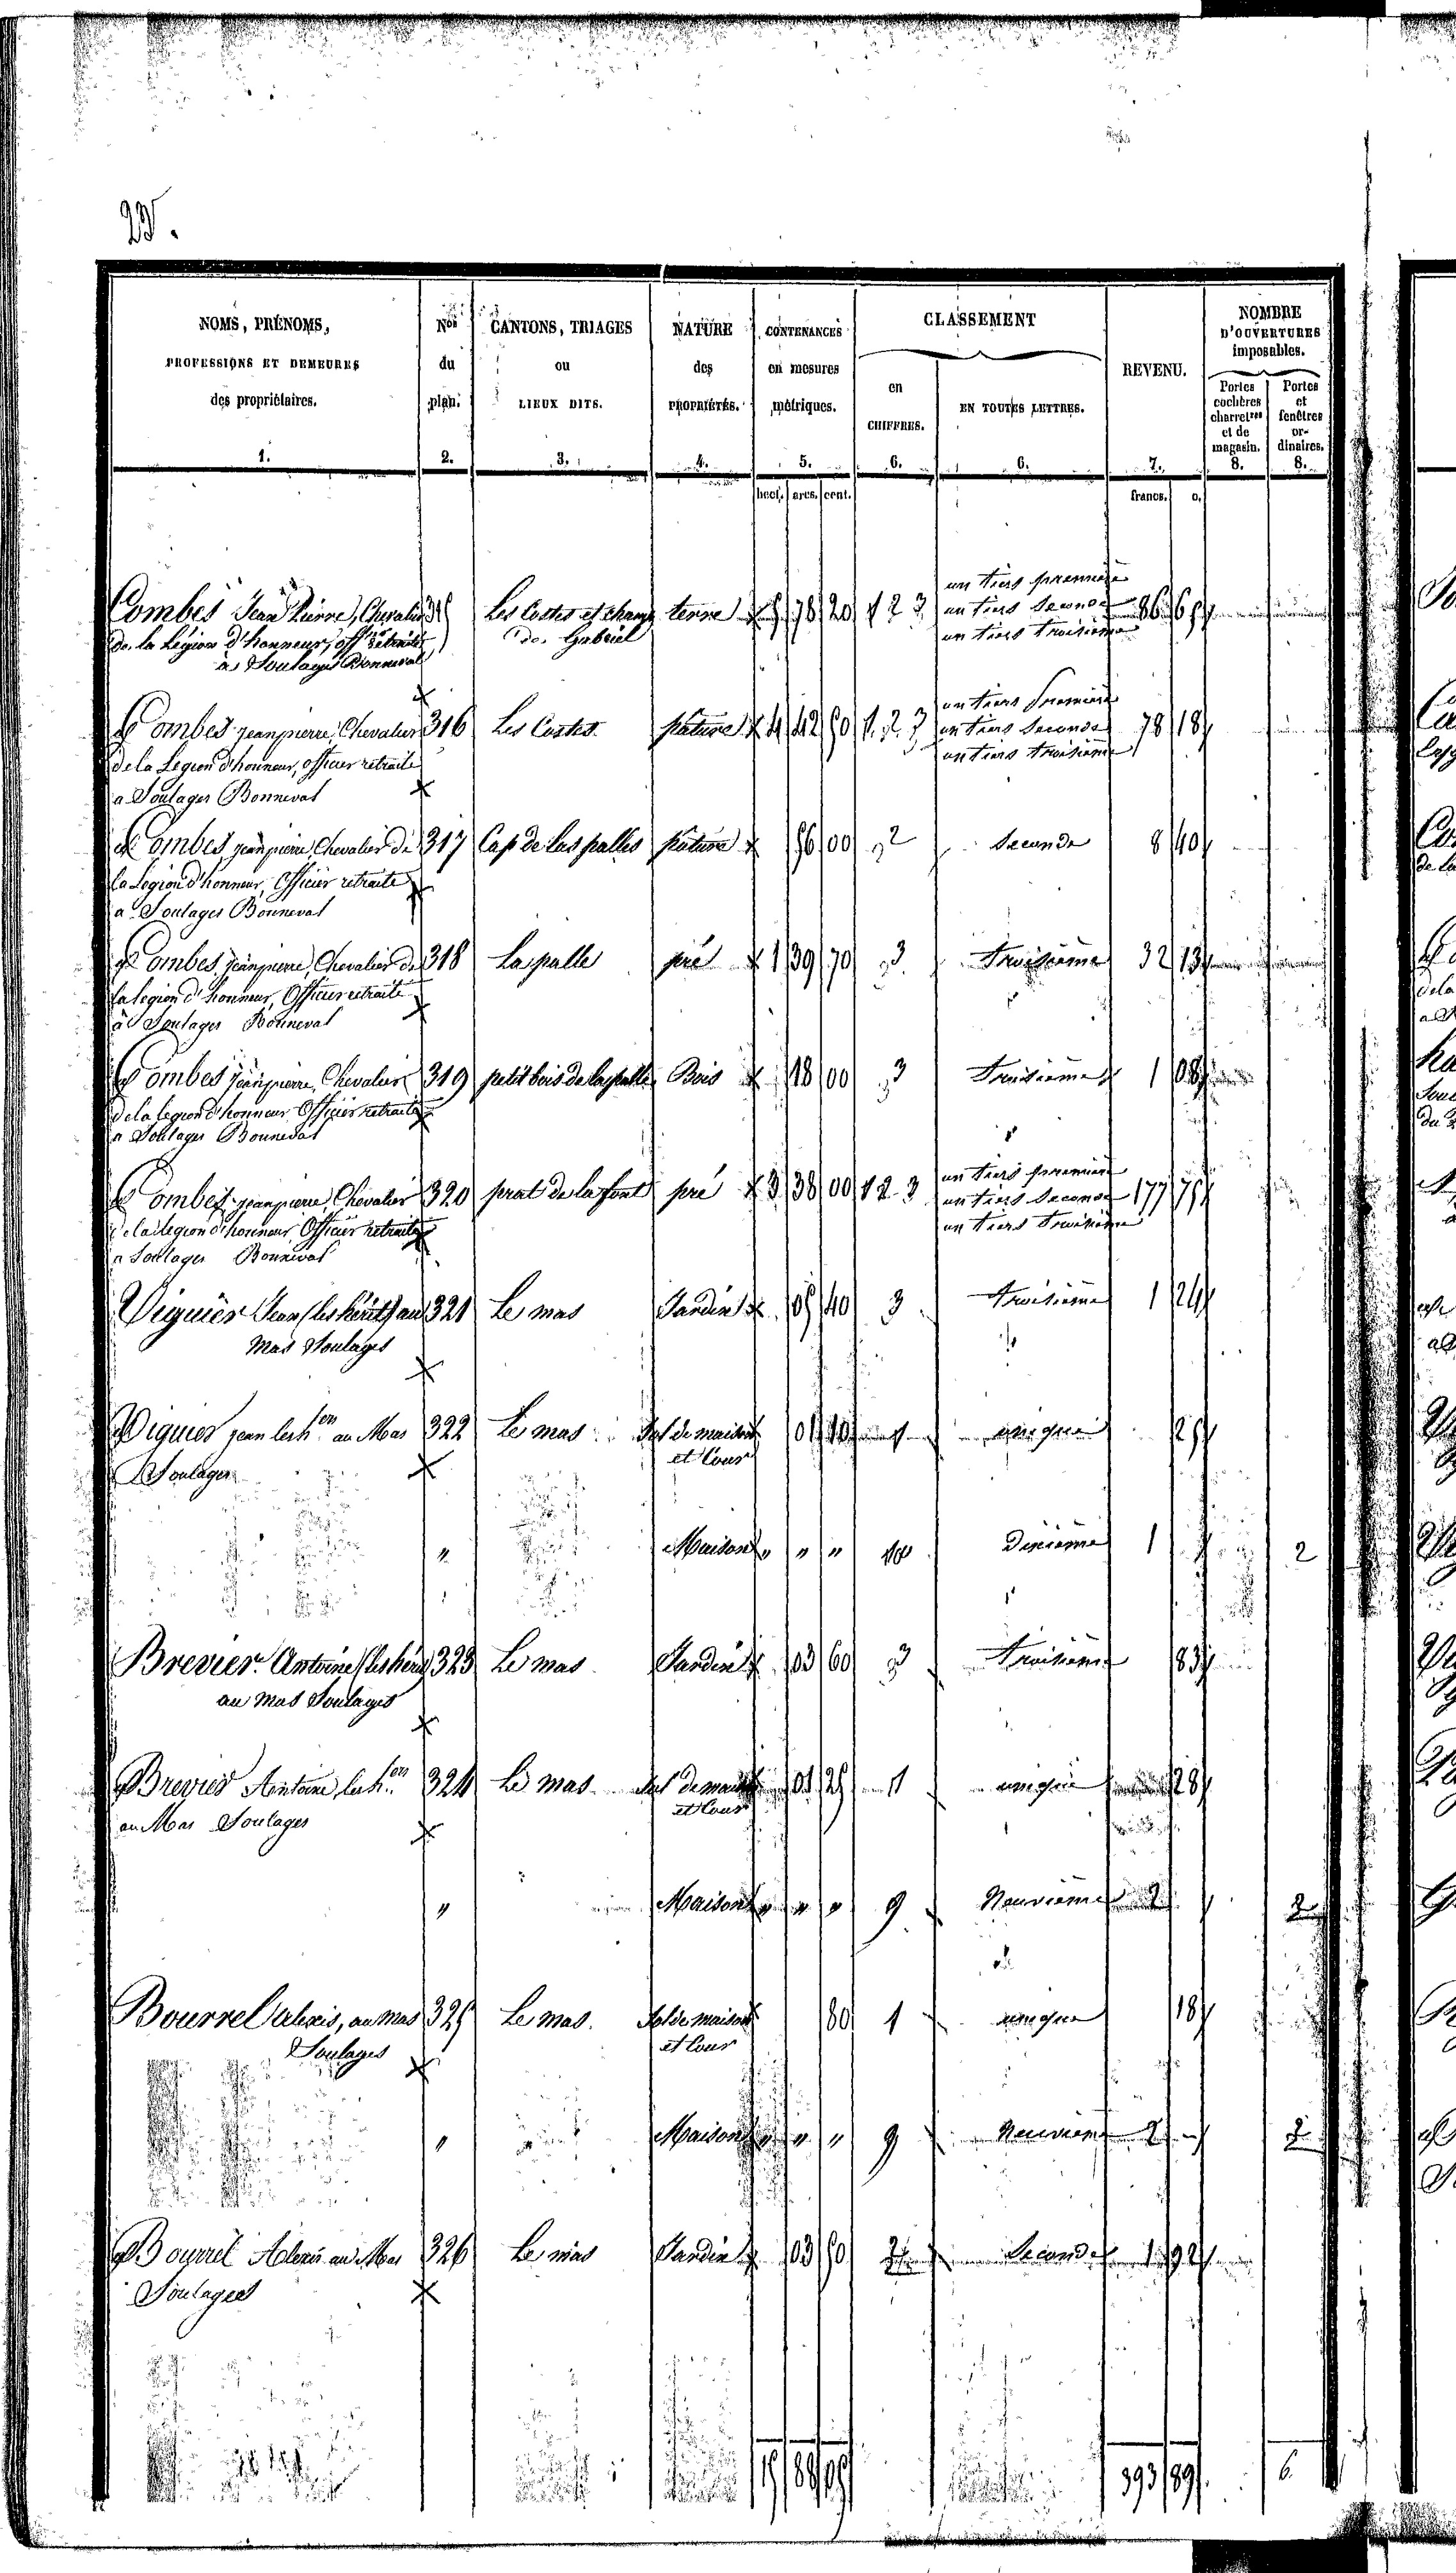 NOMS, PRÉNOMS, PROFESSIONS ET DEMEURES des propriétaires. 1.
Nos du plan. 2.
CANTONS, TRIAGES ou LIEUX DITS. 3.
NATURE des PROPRIÉTÉS. 4.
CONTENANCES en mesures métriques. 5.
CLASSEMENT
en CHIFFRES. 6.
EN TOUTES LETTRES. 6.
REVENU. 7.
NOMBRE D'OUVERTURES imposables.
Portes cochères charretres et de magasin. 8.
Portes et fenêtres ordinaires. 8.
hect. ares. cent. francs. c.
un tiers première
Combes Jean Pierre, Chevalier Les Costes et champ terre 78 20 1 2 3 un tiers seconde 86
de la Légion d'honneur, offer retraité de Gabriel un tiers troisième
à Soulages Bonneval
un tiers première
Combes jeanpierre Chevalier 316 Les Costes pature 4 42 1. 2. 3 un tiers seconde 78 18
de la Legion d'honneur, officier retraité un tiers troisième
a Soulages Bonneval
Combes jeanpierre Chevalier de 317 Cap de Las palles pature 96 00 2 Seconde 8 40
la Legion d'honneur, Officier retraité
a Soulages Bonneval
Combes jeanpierre, Chevalier de 318 La palle pré 1 39 70 3 Troisième 32 13
la legion d'honneur, Officier retraité
à Soulages Bonneval
Combes jeanpierre, Chevalier 319 petit bois de la palle Bois 18 00 3 Troisième 1 08
de la legion d'honneur Officier retraité
a Soulages Bonneval
un tiers première
Combes jeanpierre, Chevalier 320 prat de la font pré 3 38 00 1 2 3 un tiers seconde 177 75
de la legion d'honneur, Officier retraité un tiers troisième
a Soulages Bonneval
Viguier Jean (les hérit) au 321 Le mas Jardin 05 40 3 troisième 1 24
Mas Soulages
Viguier jean les hers au Mas 322 Le mas Sol de maison 01 10 1 unique 25
Soulages et Cour
" Maison " " " 10 Dixième 1 2
Brevier Antoine (les hérit 323 Le mas Jardin 03 60 3 Troisième 83
au mas Soulages
Brevier Antoine les hers 324 Le mas Sol de maison 01 25 1 unique 28
au Mas Soulages et Cour
" Maison " " " 9 Neuvième 2 2
Bourrel Alexis, au mas 325 Le mas. Sol de maison 80 1 unique 18
Soulages et Cour
" Maison " " " 9 Neuvième 2 2
Bourrel Alexis au Mas 326 Le mas Jardin 03 2 Seconde 1 92
Soulages
393 89 6